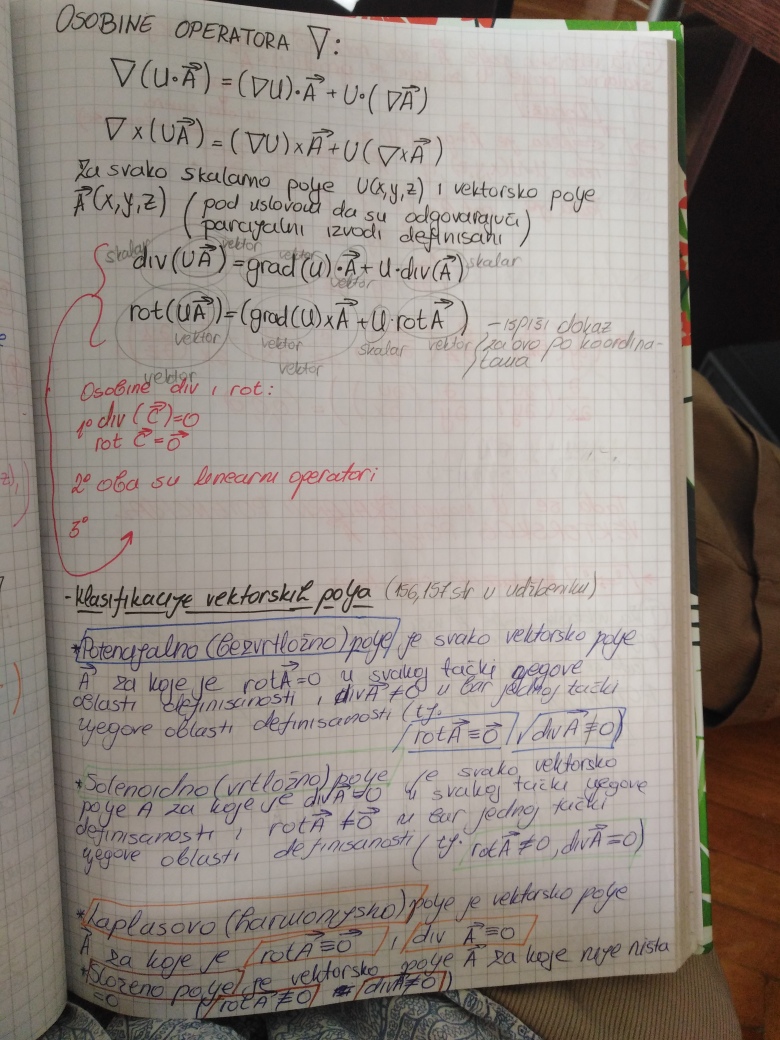 OSOBINE OPERATORA ∇:
∇(U·A⃗) = (∇U)·A⃗ + U·(∇A⃗)
∇×(UA⃗) = (∇U)×A⃗ + U(∇×A⃗)
Za svako skalarno polje U(x,y,z) i vektorsko polje
A⃗(x,y,z) (pod uslovom da su odgovarajući
parcijalni izvodi definisani)
skalar vektor vektor vektor skalar
div(UA⃗) = grad(U)·A⃗ + U·div(A⃗)
rot(UA⃗) = (grad(U)×A⃗ + U·rotA⃗)
vektor vektor skalar vektor
vektor vektor
- ispiši dokaz
za ovo po koordina-
tama
Osobine div i rot:
1° div(C⃗)=0
rot C⃗=0⃗
2° oba su linearni operatori
3°
- Klasifikacije vektorskih polja (156,157 str u udžbeniku)
*Potencijalno (bezvrtložno) polje je svako vektorsko polje
A⃗ za koje je rotA⃗=0 u svakoj tački njegove
oblasti definisanosti i divA⃗≠0 u bar jednoj tački
njegove oblasti definisanosti (tj.
rotA⃗≡0⃗ divA⃗≢0)
*Solenoidno (vrtložno) polje je svako vektorsko
polje A za koje je divA⃗=0 u svakoj tački njegove
definisanosti i rotA⃗≠0⃗ u bar jednoj tački
njegove oblasti definisanosti (tj. rotA⃗≢0, divA⃗≡0)
*Laplasovo (harmonijsko) polje je vektorsko polje
A⃗ za koje je rotA⃗≡0⃗ i div A⃗≡0
*Složeno polje je vektorsko polje A⃗ za koje nije ništa
=0 (rotA⃗≢0 divA⃗≢0)